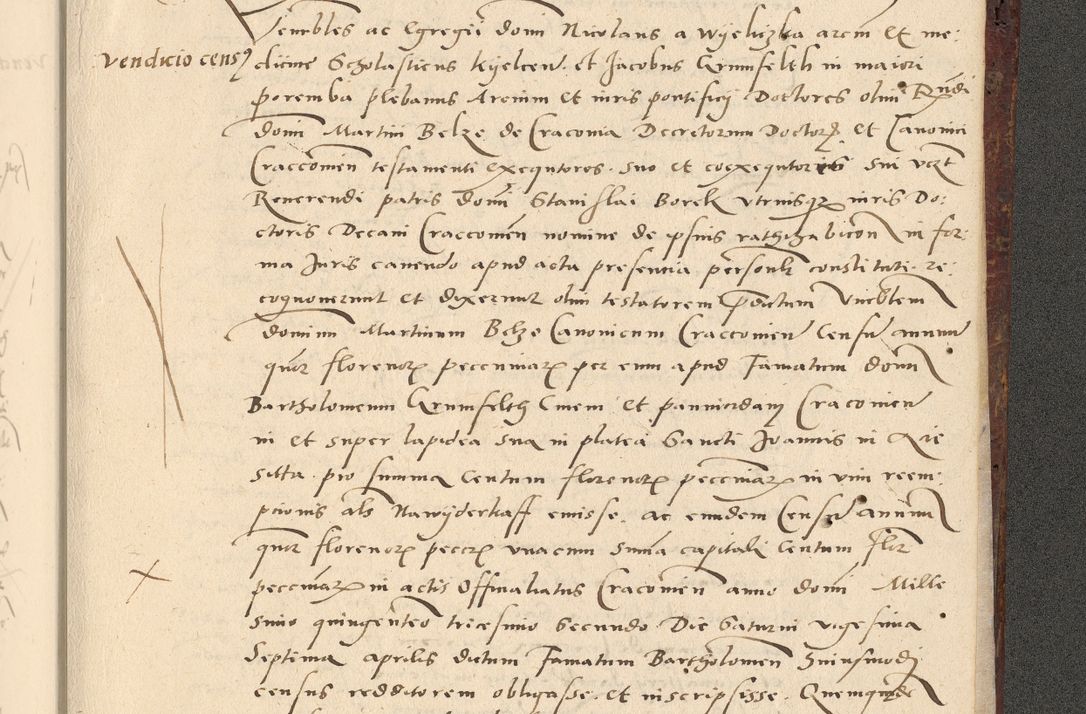 Venerabiles ac Egregii domi Nicolaus a Wyeliczka arcm Et me:
Vendicio census
dicine Scholasticus Kyelcen. et Jacobus Grumfelth in maiori
poremba plebanus Arcium Et iuris pontificij Doctores olim Rndi
domi Martini Belze de Cracovia Decretorum Doctor Et Canonici
Craccovien testamenti Exequtores. suo et coexequtoris sui vczt
Reverendi patris domi Stanislai Borek vtriusqz iuris Do:
ctoris Decani Craccovien nomine de ipsius in for:
ma Juris cavendo apud acta presentia personlr constituti. re:
cognoverunt et dixerunt olim testatorem pdictum Vnerblem
dominum Martinum Belze Canonicum Craccovien Censum annuum
qntuor florenorum pecuniarum per eum apud Famatum domi
Bartholomeum Grumfelth Civem Et pannicidam Cracovien
in et super lapidea sua in platea Sancti Joannis in acie
sitta. pro summa Centum florenorum pecuniarum in vim reem:
pcionis als Nawyderkaff emisse. ac eundem Censum annuum
qntuor florenorum peccrum vnacum suma capitali Centum flor
pecuniarum in actis Officialiatus Cracovien anno domi Mille
simo quingenteo tricesimo Secundo Die Saturni vigesima
Septima aprilis dictum Famatum Bartholomeum huiusmodi
census redditorem obligasse. et inscripsisse. Quemquide